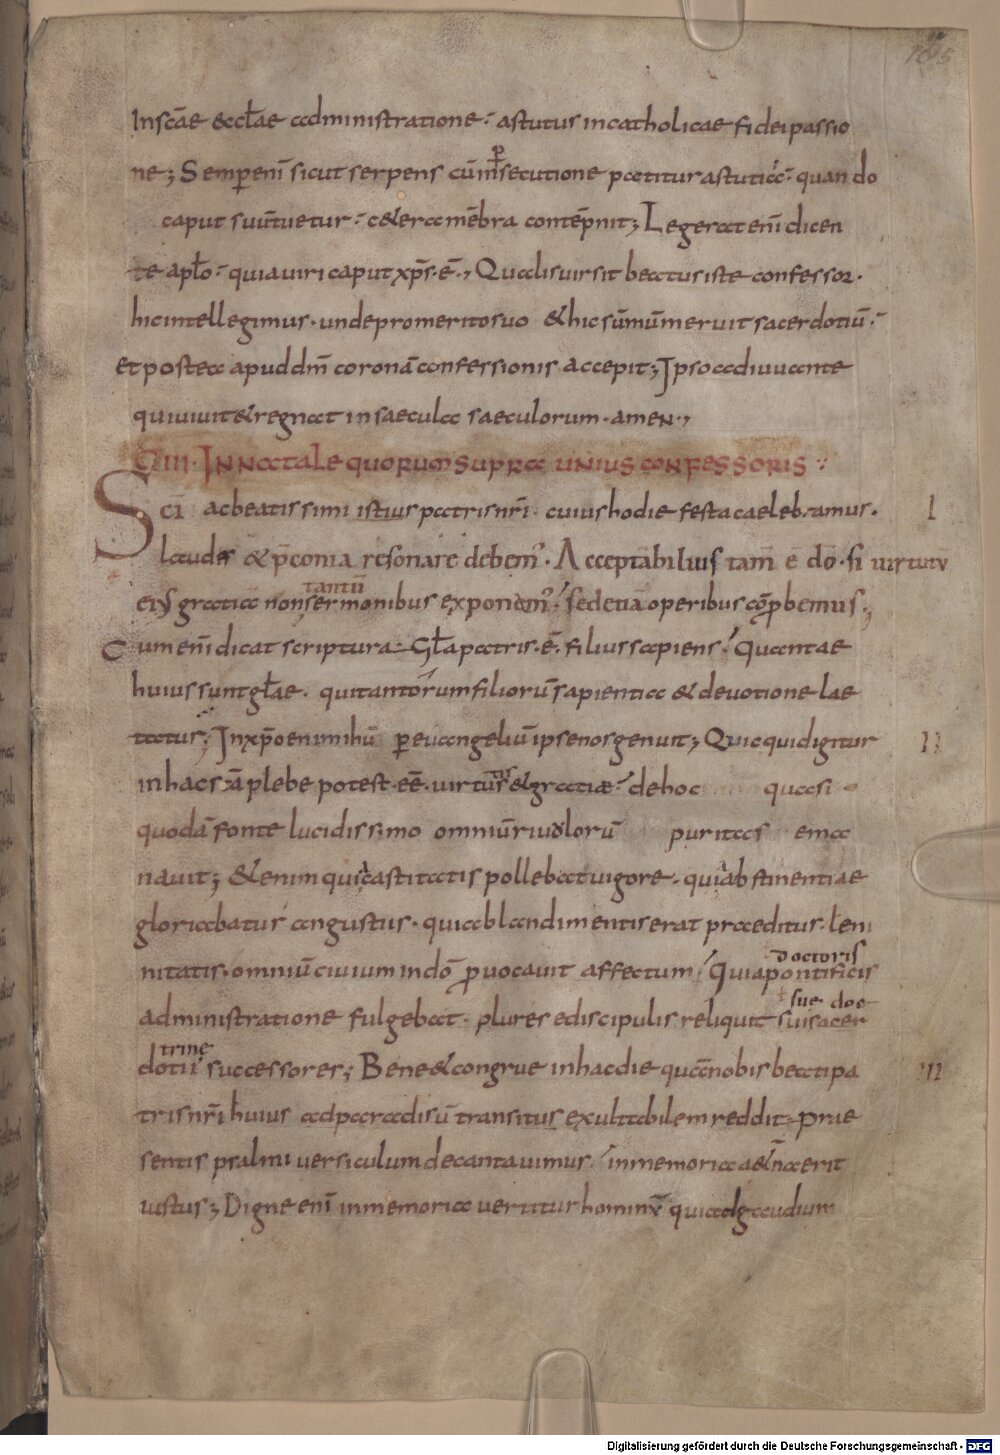 165
In scāe & eccłae administratione· astutus in catholicae fidei passio
ne; Semper enī sicut serpens cū in persecutione patitur astutia· quando
caput suū tuetur· & cetera mēbra contēpnit; Legerat enī dicen
te apło· quia viri caput xp̄s ē·, Qualis vir sit beatus iste confessor·
hic intellegimus· unde pro merito suo & hic sūmū meruit sacerdotiū·
et postea apud dm̄ coronā confessionis accepit; Ipso adiuuante
qui vivit & regnat in saecula saeculorum· amen·,
CIII· IN NATALE QUORUM SUPRA UNIUS CONFESSORIS
Scī ac beatissimi istius patris nr̄i· cuius hodie festa caelebramus· I
laudes & p̄conia resonare debem᾽· Acceptabilius tam̄ ē dō· si virtutū
eius gratiā non sermonibus exponem᾽· sed etiā operibus cōprobemus;
tantū
Cum enī dicat scriptura· Gła patris ē filius sapiens· Quantae
huius sunt głae· qui tantorum filiorū sapientia & devotione lae
tatur; In xp̄o enim ihū per euangeliū ipse nos genuit; Quicquid igitur II
in hac scā plebe potest eē virtutis & gratiae· de hoc quasi
quodā fonte lucidissimo omniū riuolorū puritas ema
nauit; &enim quia castitatis pollebat vigore· quia abstinentiae
gloriabatur angustus· quia blandimentis erat praeditus· leni
doctoris
nitatis· omniū civium in dō provocavit affectum· Quia pontificis
sue doc
administratione fulgebat· plures e discipulis reliquit sui sacer
trine
dotii successores; Bene & congrue in hac die quā nobis beati pa III
tris nr̄i huius ad paradisū transitus exultabilem reddit· prae
sentis psalmi versiculum decantavimus· in memoria aet̄na erit
iustus; Digne enī in memoria vertitur hominū qui ad gaudium
Digitalisierung gefördert durch die Deutsche Forschungsgemeinschaft - DFG